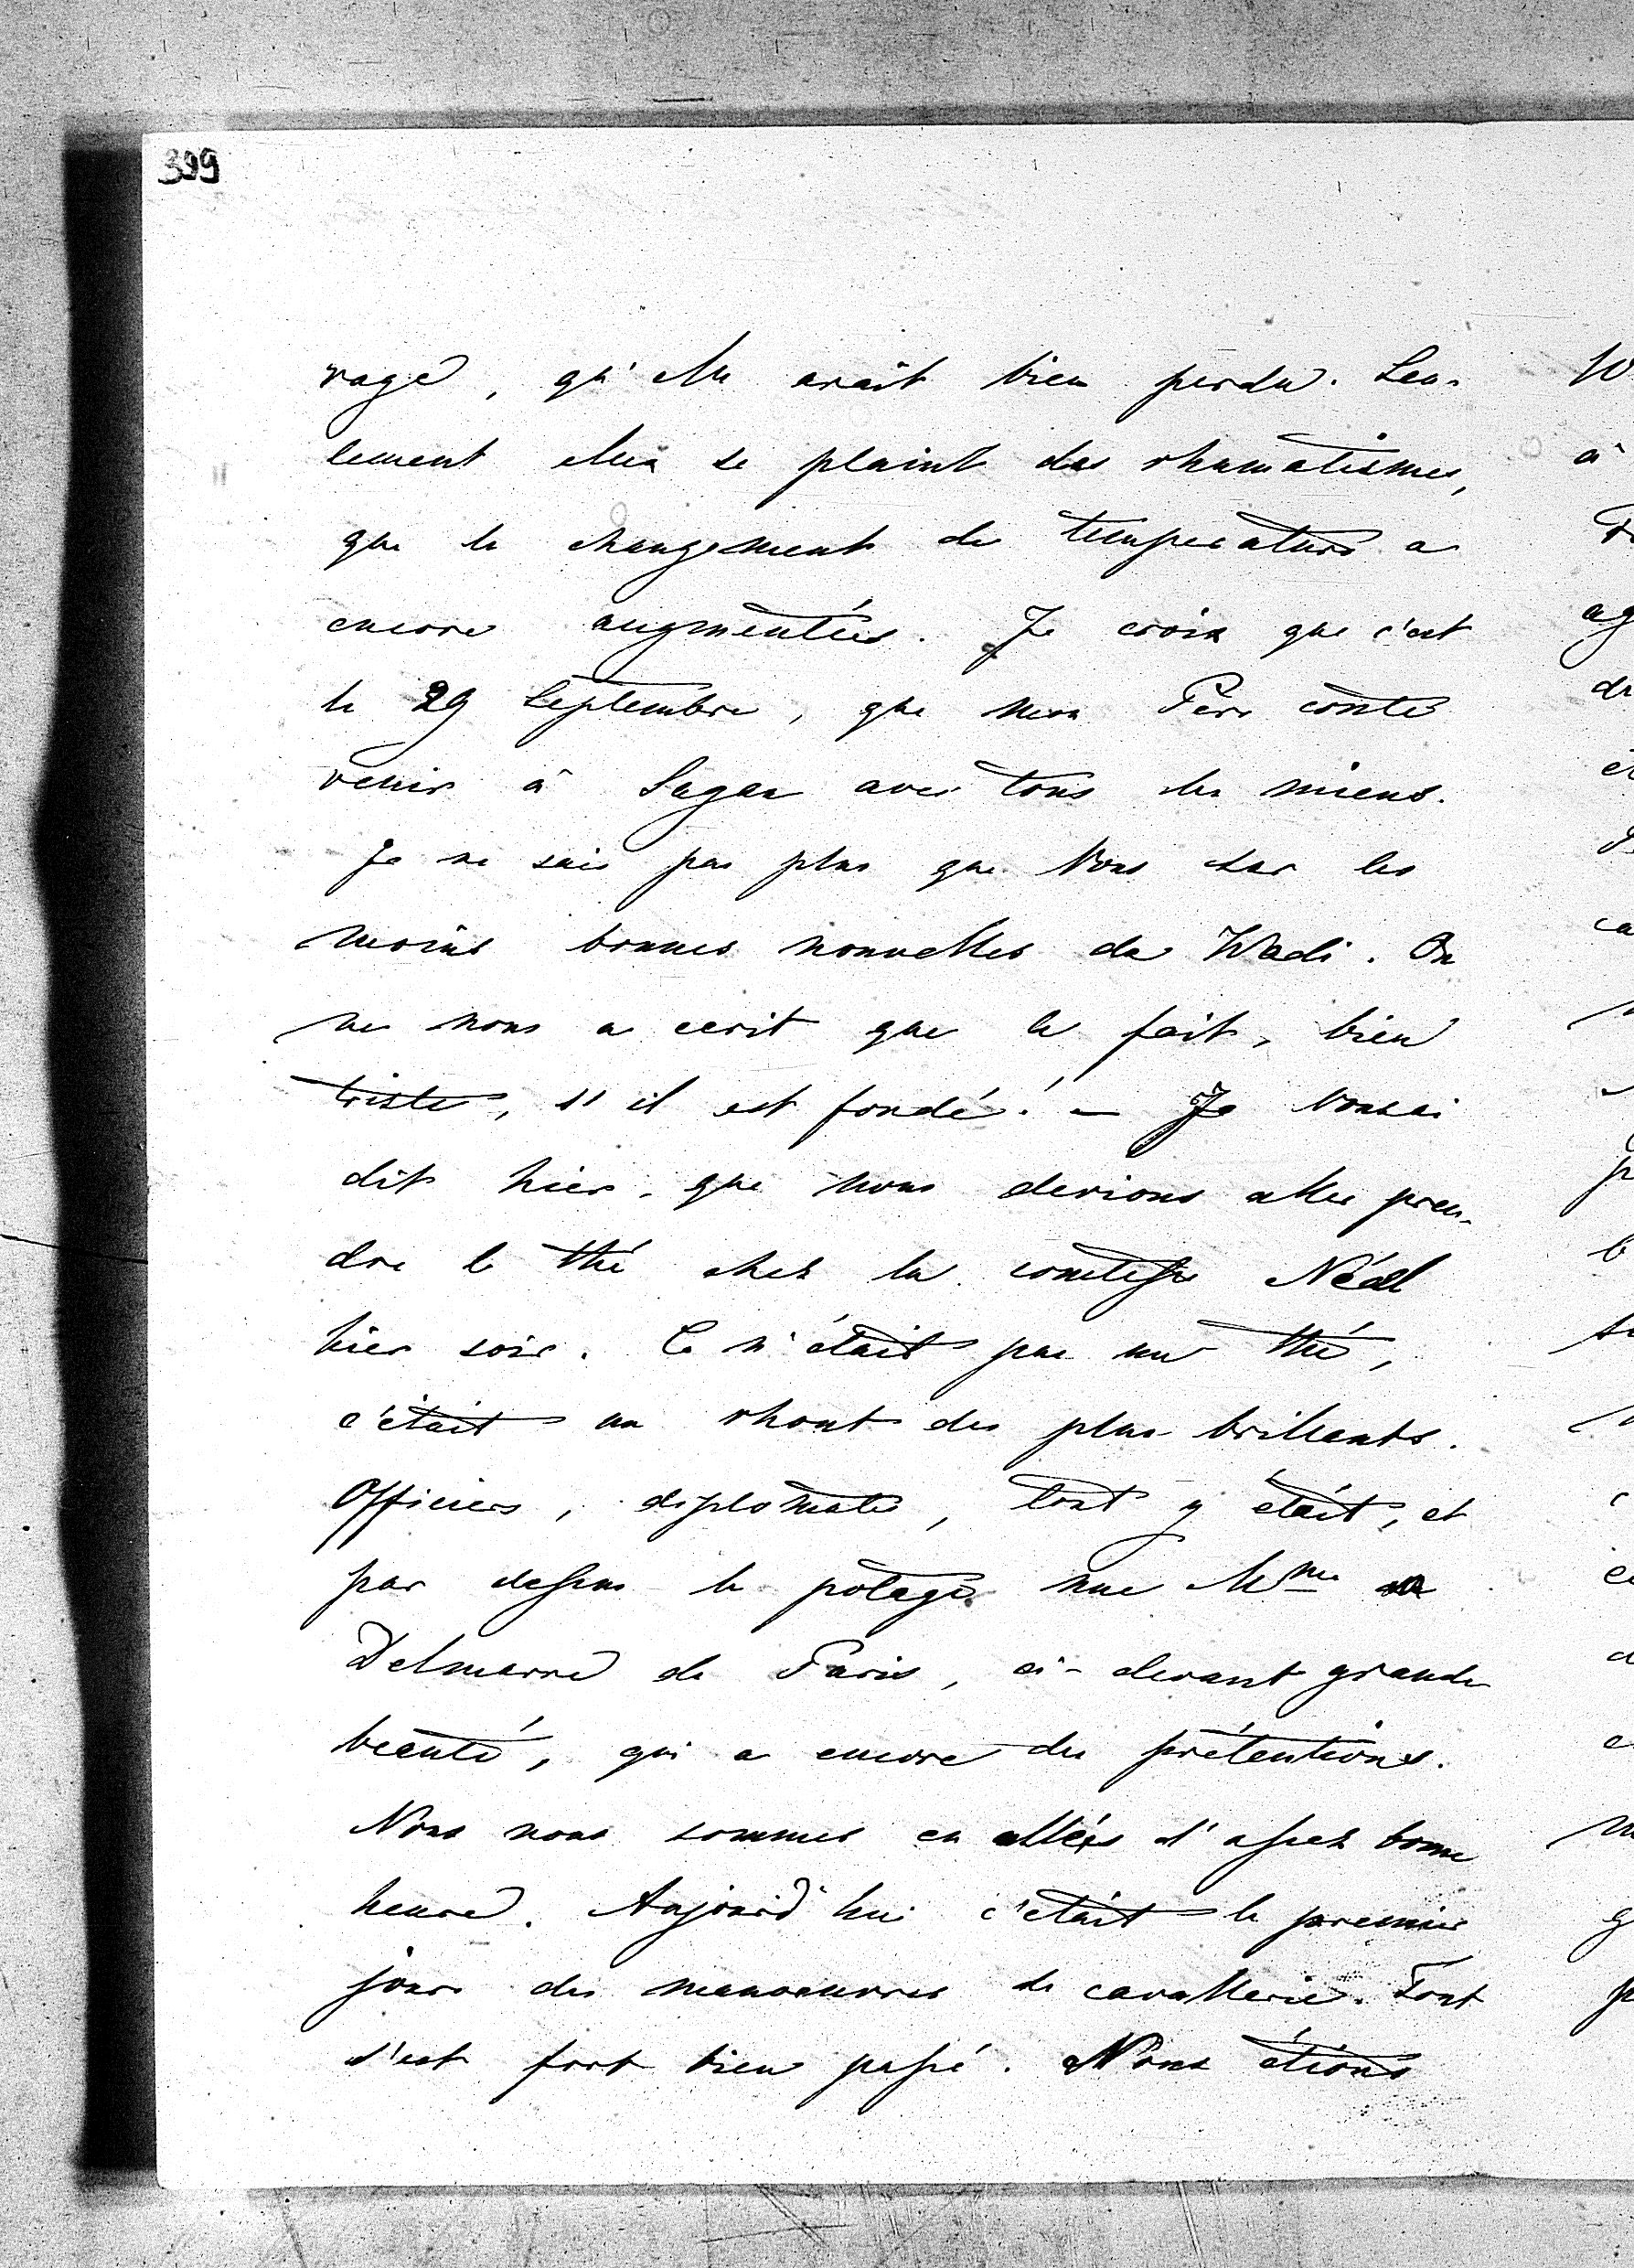 399
rage, qu'elle avait bien perdu. Seu-
lement elle se plaint des rhumatismes,
que le changement de temperature a
encore augmentées. Je crois que c'est
le 29 Septembre, que mon Père compte
venir à Sagan avec tous les miens.
Je ne sais pas plus que Vous sur les
moins bonnes nouvelles de Wadi. On
ne nous a ecrit que le fait, bien
triste, s'il est fondé! — Je Vous ai
dit hier, que nous devions aller pren-
dre le thé chez la comtesse Néal
hier soir. Ce n'était pas un thé,
c'était un rhout des plus brillants.
Officiers, diplomate, tout y était, et
par dessus le potage une Mme
Delmarre de Paris, ci-devant grande
beauté, qui a encore des prétentions.
Nous nous sommes en allées d'assez bonne
heure. Aujourd'hui c'était le premier
jour des manoeuvres de cavallerie. Tout
s'est fort bien passé. Nous étions